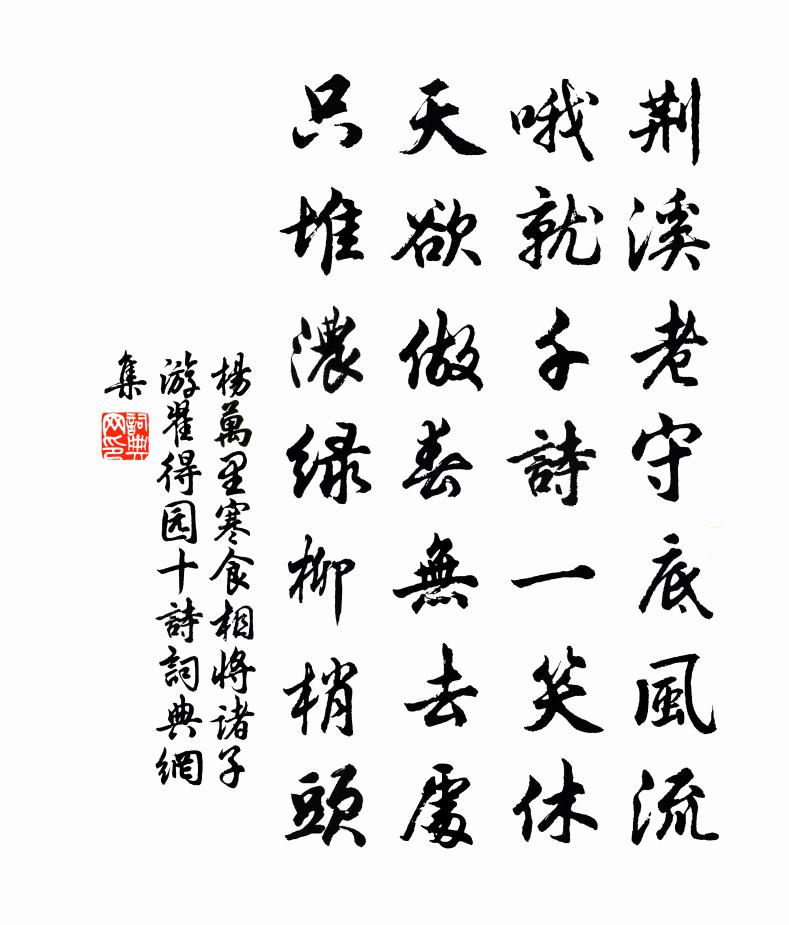 荆溪老守底風流
哦就千詩一笑休
天欲做春無去處
只堆濃绿柳梢頭
楊萬里寒食相將諸子
游翟得园十詩詞典網
集
詞典网印